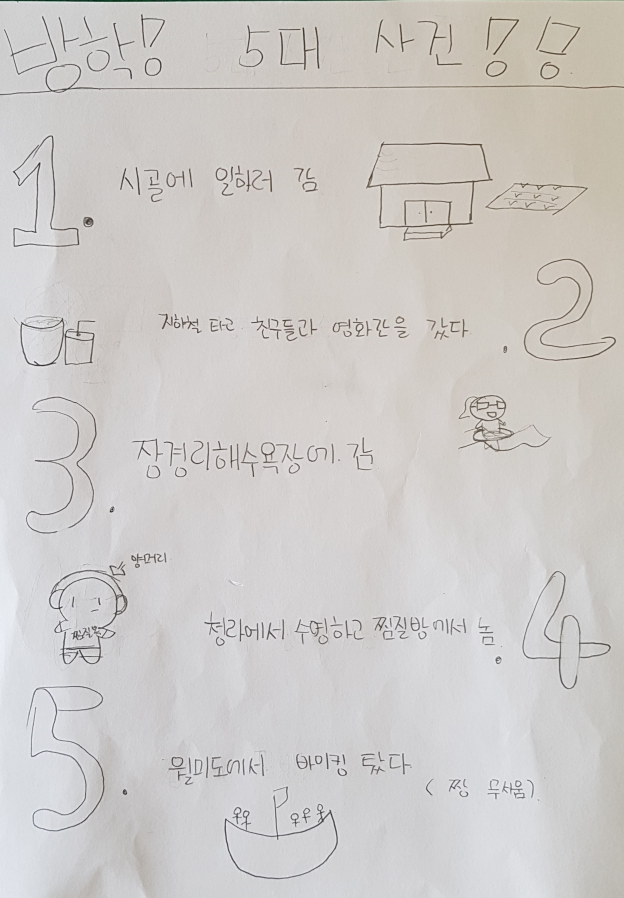 방학! 5대 사건!!
1. 시골에 일하러 감
지하철 타고 친구들과 영화관을 갔다. 2
3. 장경리해수욕장에 감
양머리
찜질복
청라에서 수영하고 찜질방에서 놈. 4
5. 월미도에서 바이킹 탔다
(짱 무서움)